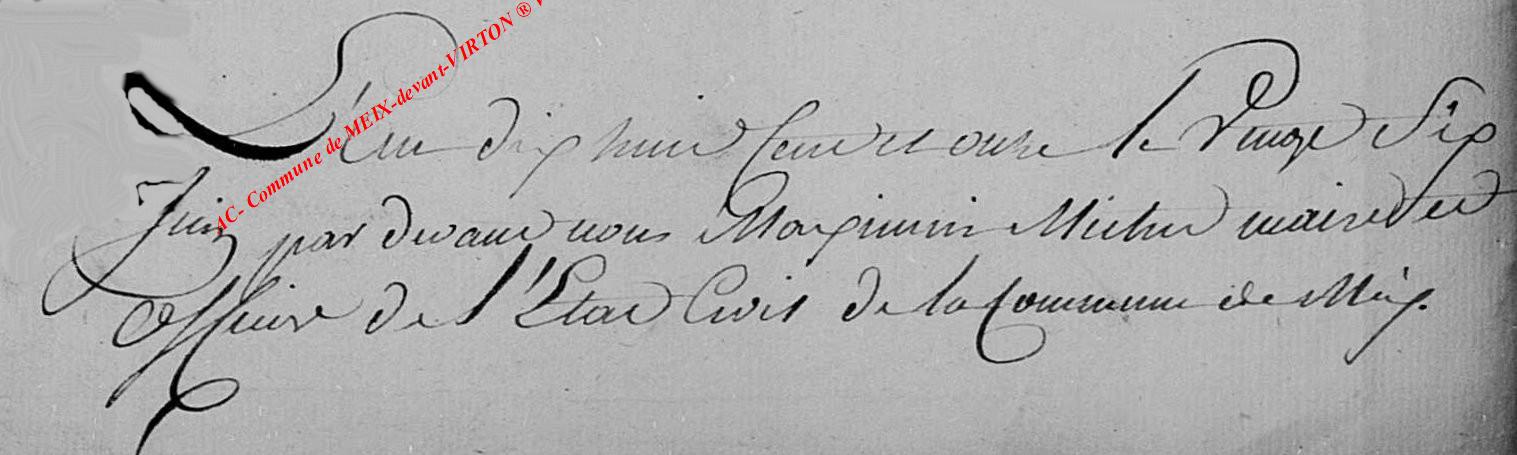 AC- Commune de MEIX-devant-VIRTON ®
L'an dix huit Cent et onze le Vingt Six
Juin par devant nous Maximin Michel maire et
officier de l'Etat Civil de la Commune de Meix.